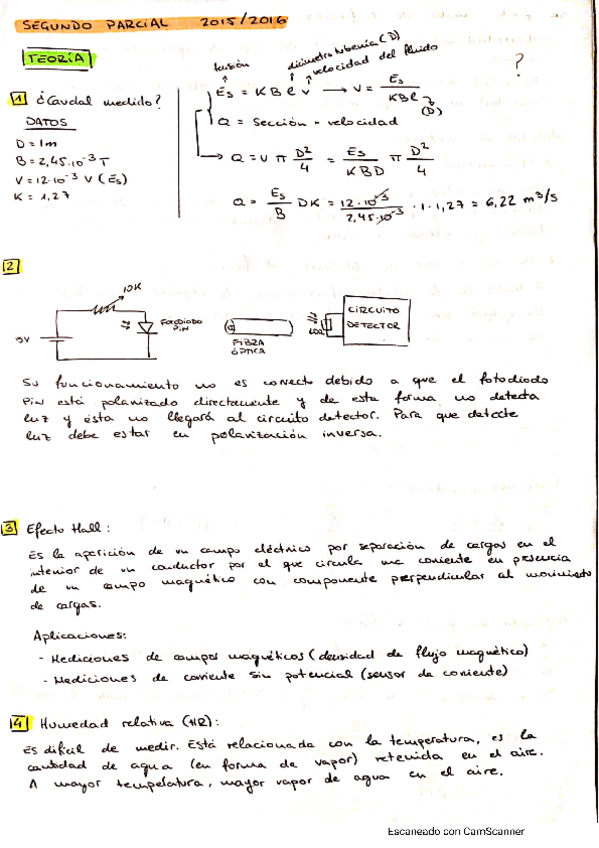 SEGUNDO PARCIAL 2015/2016
TEORÍA
1 ¿Caudal medido?
DATOS
D = 1m
B = 2,45·10⁻³ T
V = 12·10⁻³ V (Es)
K = 1,27
tensión
diámetro tubería (D)
velocidad del fluido
?
Es = K B ℓ v → v = Es / KBℓ
(D)
Q = Sección - velocidad
Q = v π D²/4 = Es/KBD π D²/4
Q = Es/B DK = 12·10⁻³/2,45·10⁻³ · 1 · 1,27 = 6,22 m³/s
2
10K
9V
FOTODIODO
PIN
FIBRA
ÓPTICA
LDR
CIRCUITO
DETECTOR
Su funcionamiento no es correcto debido a que el fotodiodo
PIN está polarizado directamente y de esta forma no detecta
luz y ésta no llegará al circuito detector. Para que detecte
luz debe estar en polarización inversa.
3 Efecto Hall:
Es la aparición de un campo eléctrico por separación de cargas en el
interior de un conductor por el que circula una corriente en presencia
de un campo magnético con componente perpendicular al movimiento
de cargas.
Aplicaciones:
- Mediciones de campos magnéticos (densidad de flujo magnético)
- Mediciones de corriente sin potencial (sensor de corriente)
4 Humedad relativa (HR):
Es difícil de medir. Está relacionada con la temperatura, es la
cantidad de agua (en forma de vapor) retenida en el aire.
A mayor temperatura, mayor vapor de agua en el aire.
Escaneado con CamScanner